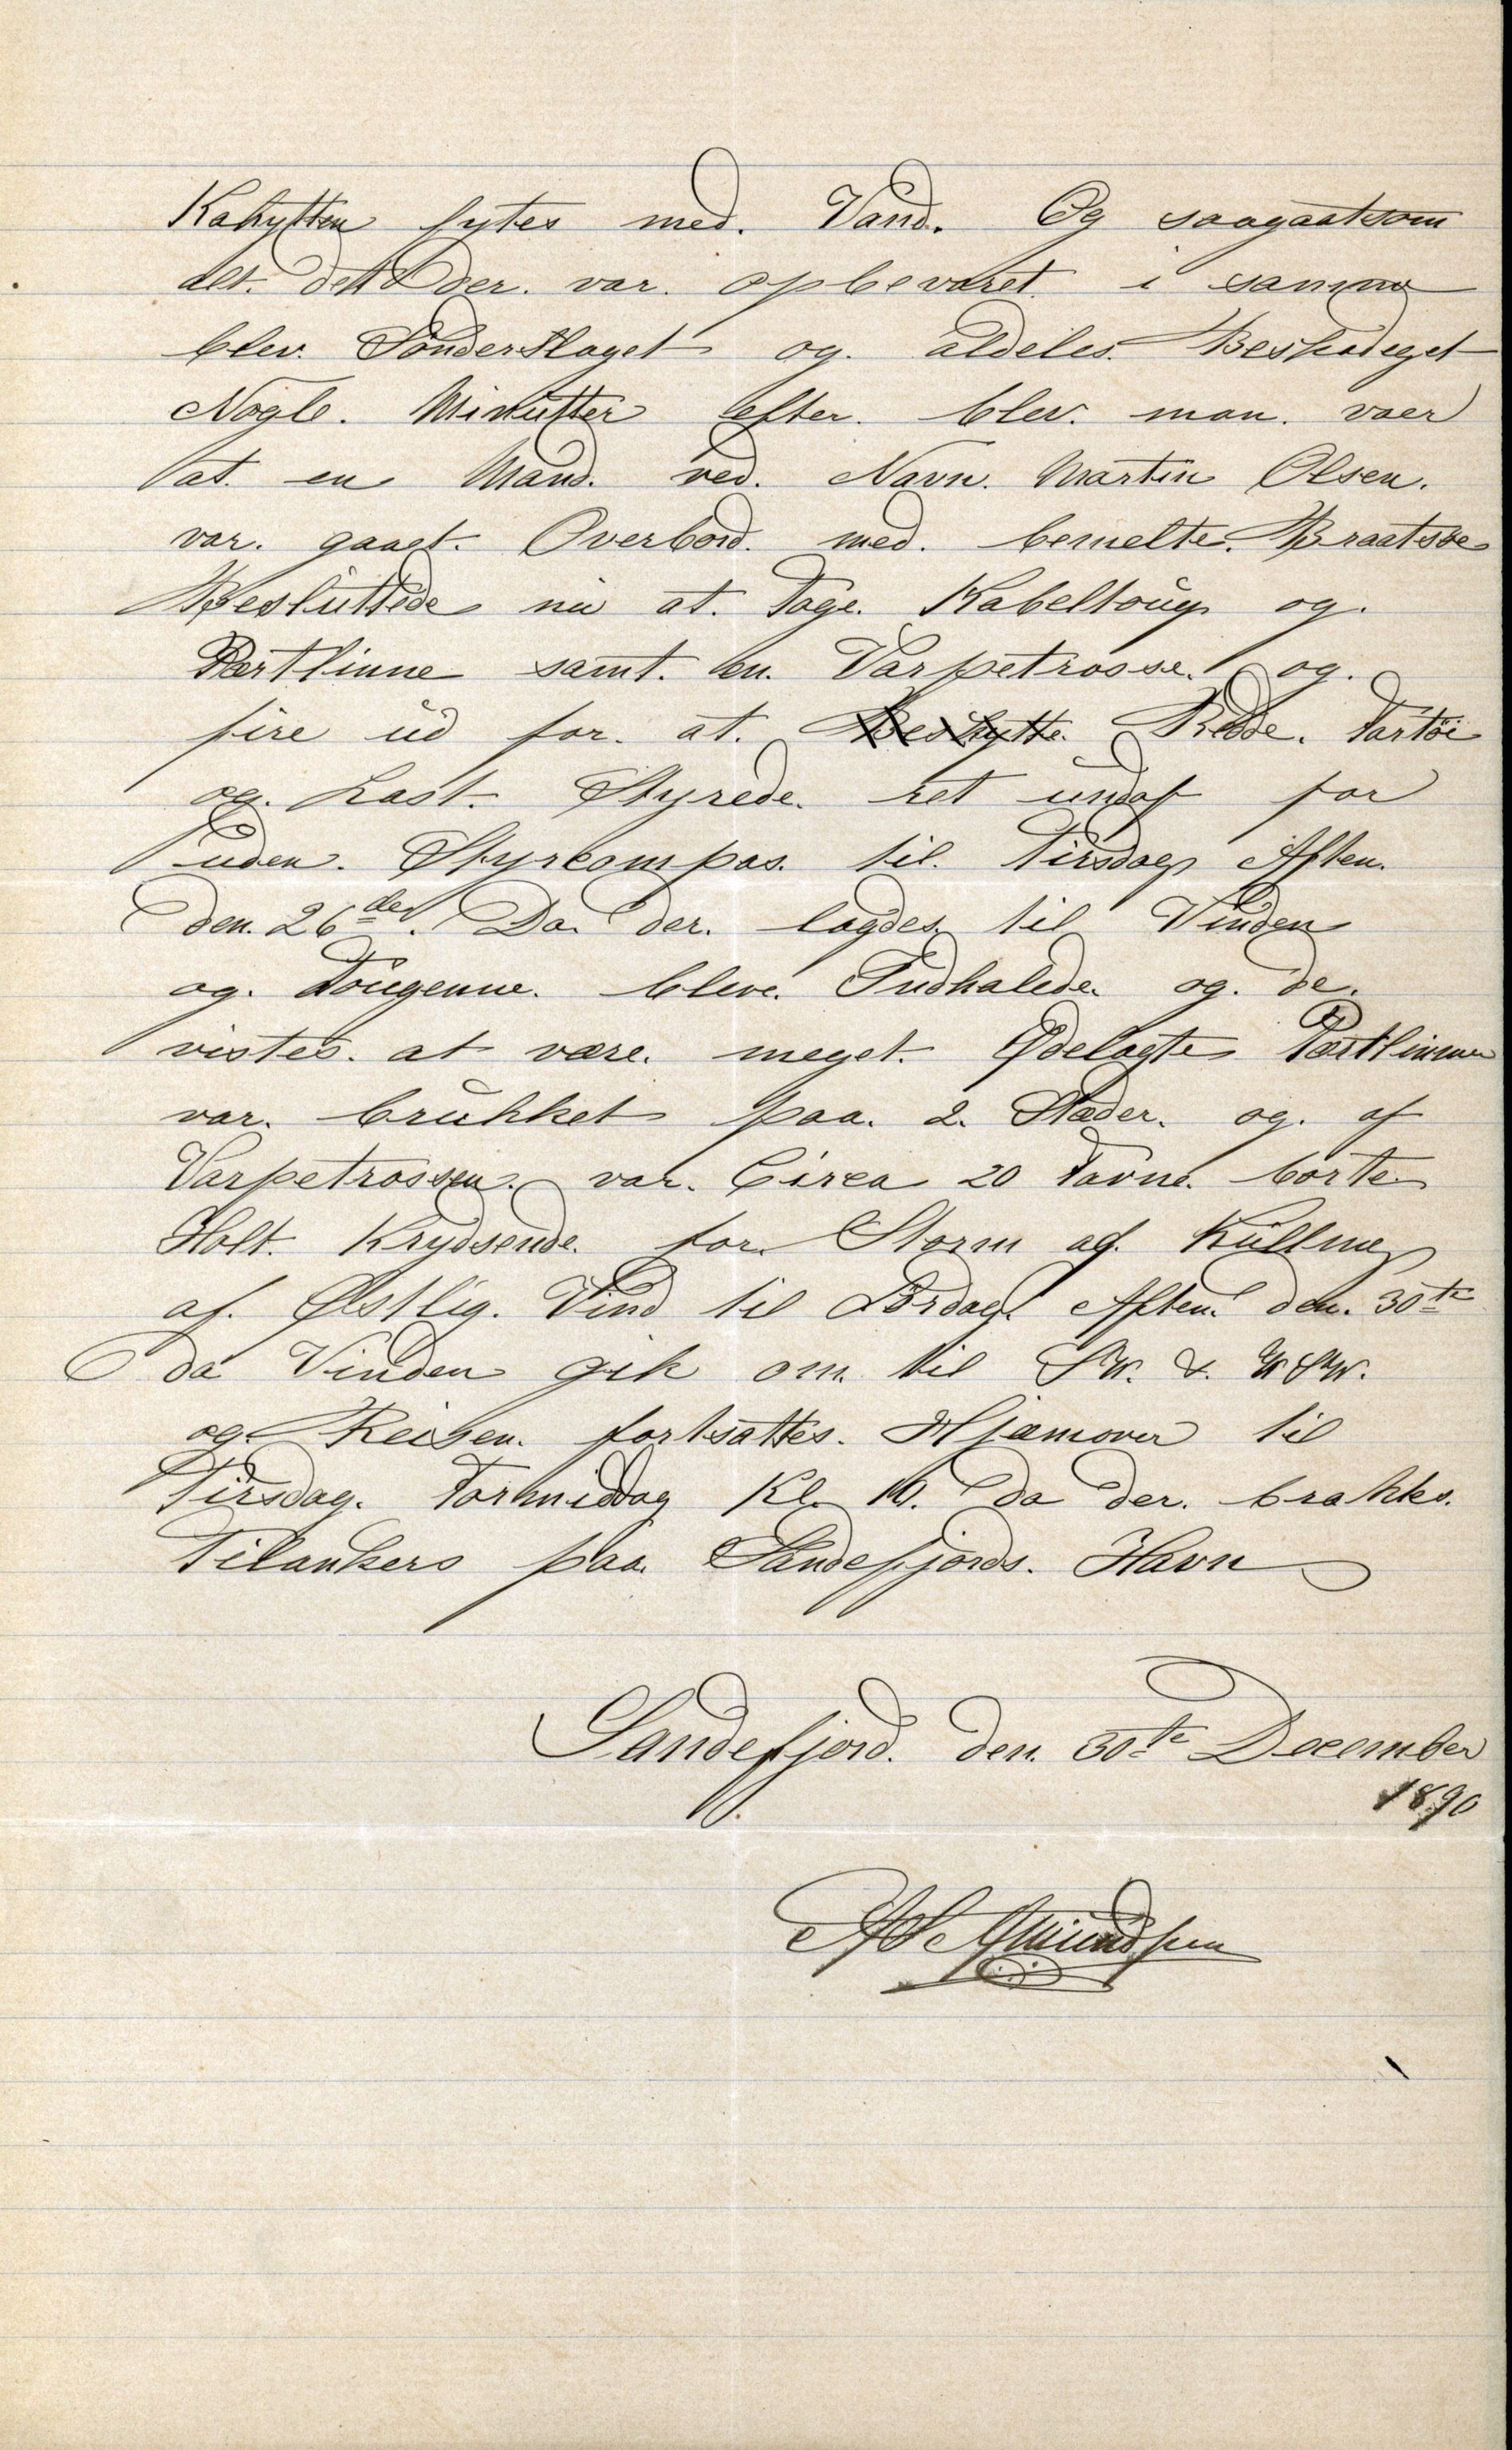 Kahytten fytes med. Vand. Og saagaatsom
alt. dett der. var. opbevaret. i samme
blev. Sønderslaget og. aldeles. Beskadeget
Nogle. Minutter efter. blev. man. vaer
at. en Mand. ved. Navn. Martin Olsen.
var. gaaet. Overbord. med. bemelte. Braatsøe
Besluttede nu at. Tage. Kabeltoug og.
Pertlinne samt. en. Varpetrosse. og.
fire ud for. at. Beskytte. Redde. Fartøi
og. Last. Styrede. ret undaf for
uden. Styrcompas. til. Tirsdag Aften.
den. 26de. Da. der. lagdes. til Vinden
og. Tougenne. bleve. Indhalede. og. de.
vistes. at være. meget. Ødelagte Pertlinnen
var. brukket paa. 2. Stæder. og. af
Varpetrossen. var. Circa 20 Favne. borte
Holt. Krydsende. for. Storm af. Kulling
af. Østlig. Vind til Lørdag. Aften. den. 30te
da Vinden gik om. til SW. & WSW.
og. Reisen. fortsattes. Hjæmover til
Tirsdag. Formiddag Kl. 10. da der. brakks.
Tilankers paa. Sandefjords. Havn
Sandefjord. den. 30te December
1890
A Amundsen